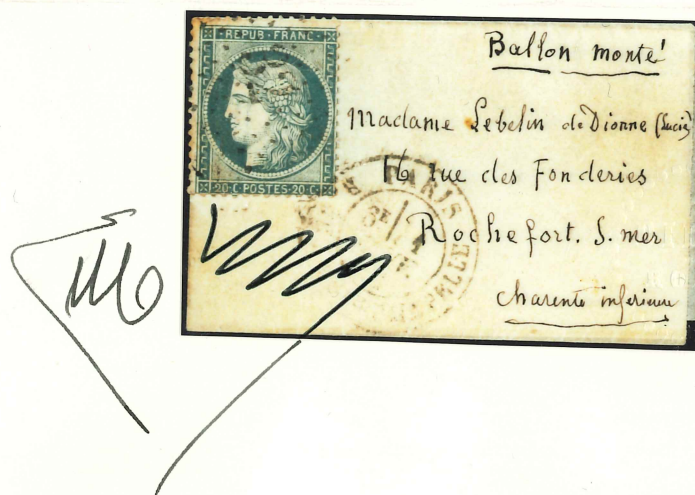 REPUB·FRANC·
20·C·POSTES·20·C
Ballon monté
Madame Lebelin de Dionne (Lucie)
16 rue des Fonderies
Rochefort. S. mer
Charente inférieure
PARIS